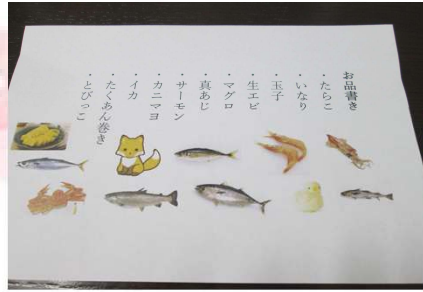 お品書き
・たらこ
・いなり
・玉子
・生エビ
・マグロ
・真あじ
・サーモン
・カニマヨ
・イカ
・たくあん巻き
・とびっこ